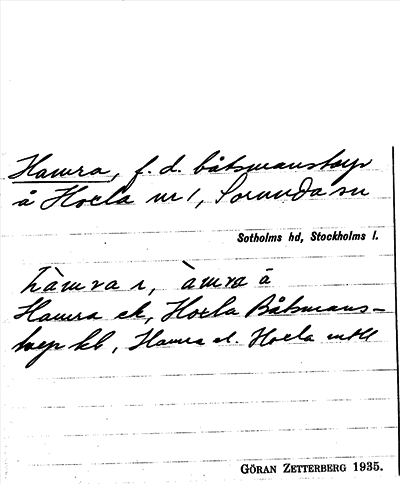 Hamra, f. d. båtsmanstorp
å Hoxla nr 1, Sorunda sn
Sotholms hd, Stockholms l.
hàmra r, àmra ä
Hamra ek, Hoxla Båtsmans-
torp kb, Hamra el. Hoxla
GÖRAN ZETTERBERG 1935.